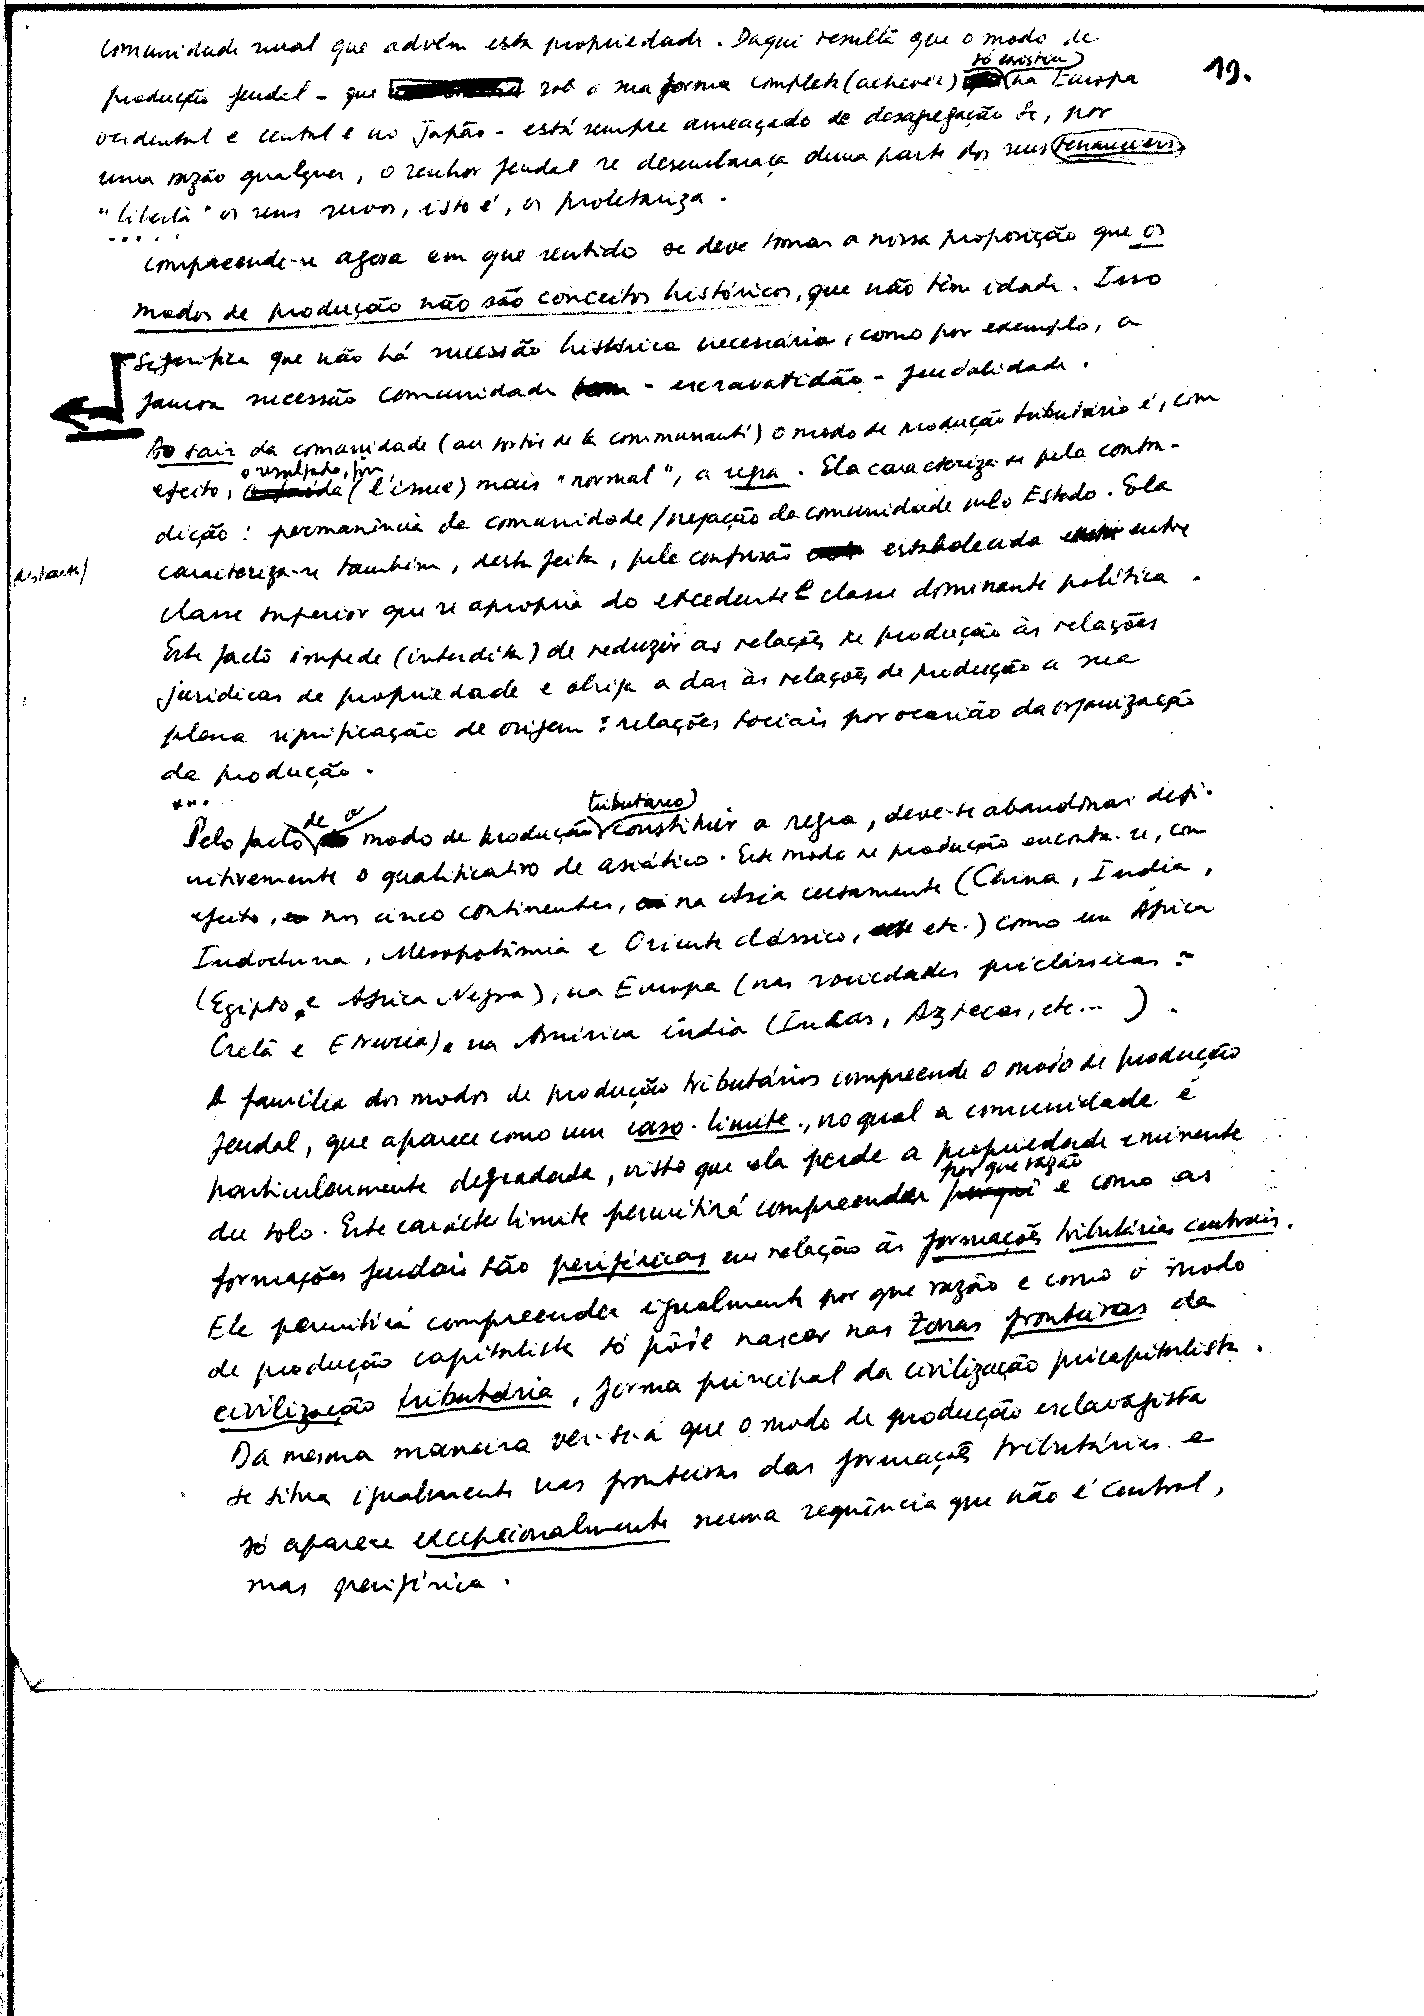 19.
comunidade rural que advém esta propriedade. Daqui resulta que o modo de
produção feudal - que sob a sua forma completa (achevée) só existiu na Europa
ocidental e central e no Japão - está sempre ameaçado de desagregação se, por
uma razão qualquer, o senhor feudal se desembaraça duma parte dos seus tenanciers
"liberta" os seus servos, isto é, os proletariza.
.....
Compreende-se agora em que sentido se deve tomar a nossa proposição que os
modos de produção não são conceitos históricos, que não têm idade. Isso
significa que não há sucessão histórica necessária, como por exemplo, a
famosa sucessão comunidade - escravatidão - feudalidade.
Ao sair da comunidade (au sortir de la communauté) o modo de produção tributário é, com
efeito, o resultado, fim (l'issue) mais "normal", a regra. Ela caracteriza-se pela contra-
dição: permanência da comunidade/negação da comunidade pelo Estado. Ela
caracteriza-se também, desta feita, pela confusão estabelecida entre
classe superior que se apropria do excedente e classe dominante política.
Este facto impede (interdita) de reduzir as relações de produção às relações
jurídicas de propriedade e obriga a dar às relações de produção a sua
plena significação de origem: relações sociais por ocasião da organização
da produção.
...
Pelo facto de o modo de produção tributário constituir a regra, deve-se abandonar defi-
nitivamente o qualificativo de asiático. Este modo de produção encontra-se, com
efeito, nos cinco continentes, na Ásia certamente (China, Índia,
Indochina, Mesopotâmia e Oriente clássico, etc.) como em África
(Egipto e África Negra), na Europa (nas sociedades préclássicas:
Creta e Etruria), na América índia (Inkas, Aztecas, etc...).
A família dos modos de produção tributários compreende o modo de produção
feudal, que aparece como um caso-limite, no qual a comunidade é
particularmente degradada, visto que ela perde a propriedade eminente
du solo. Este carácter limite permitirá compreender por que razão e como as
formações feudais são periféricas em relação às formações tributárias centrais.
Ele permitirá compreender igualmente por que razão e como o modo
de produção capitalista só pôde nascer nas zonas fronteiras da
civilização tributária, forma principal da civilização précapitalista.
Da mesma maneira ver-se-á que o modo de produção esclavagista
se situa igualmente nas fronteiras das formações tributárias e
só aparece excepcionalmente numa sequência que não é central,
mas periférica.